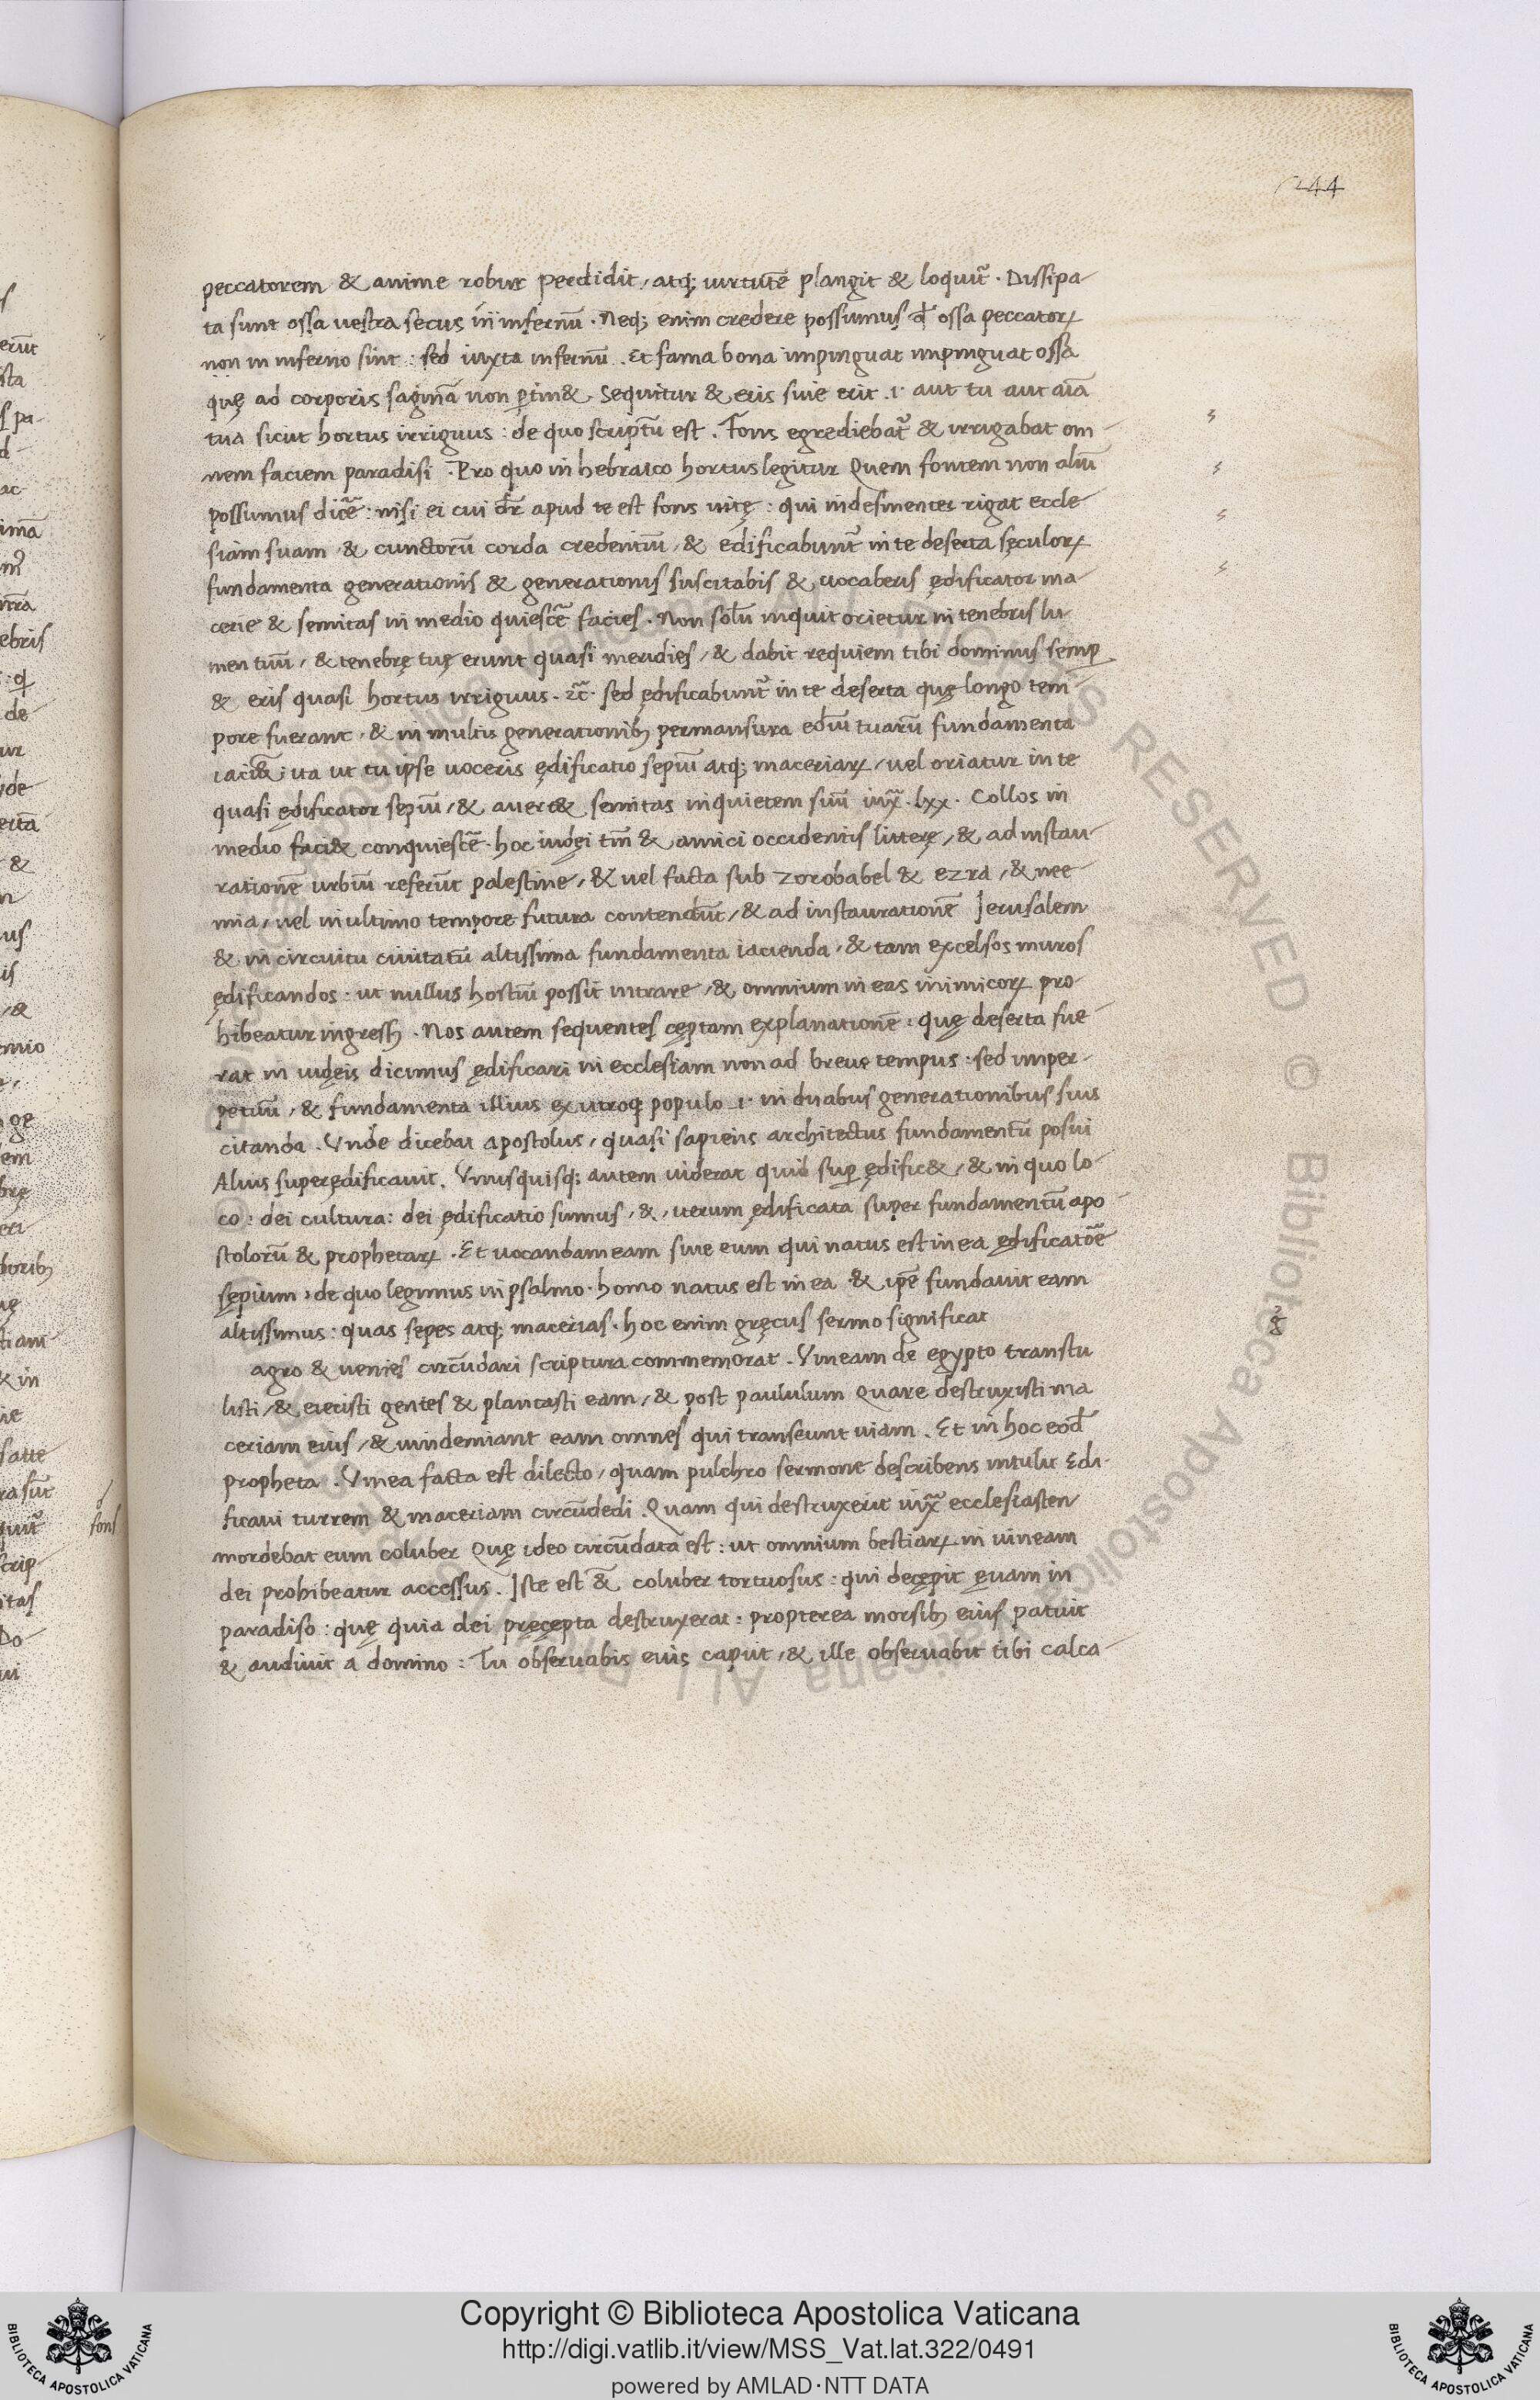 244
peccatorem & anime robur perdidit, atq; uirtutē plangit & loquit᷑. Dissipa-
ta sunt ossa uestra secus in infernū. Neq; enim credere possumus ꝙ ossa peccatoꝝ
non in inferno sint: sed iuxta infernū. Et fama bona impinguat impinguat ossa
quę ad corporis saginā non ꝑtin&. Sequitur & eris siue erit .i. aut tu aut aīa
tua sicut hortus irriguus: de quo scriptū est. Fons egrediebat᷑ & irrigabat om-
nem faciem paradisi. Pro quo in hebraico hortus legitur Quem fontem non aliū
possumus dicē: nisi ei cui dr̄ apud te est fons uitę: qui indesinenter rigat eccle-
siam suam, & cunctorū corda credentiū, & edificabunt᷑ in te deserta sęculoꝝ
fundamenta generationis & generationis suscitabis & uocaberis ędificator ma-
cerie & semitas in medio quiescē facies. Non solū inquit orietur in tenebris lu-
men tuū, & tenebrę tuę erunt quasi meridies, & dabit requiem tibi dominus semꝑ
& eris quasi hortus irriguus. ⁊c̄. sed ędificabunt᷑ in te deserta quę longo tem-
pore fuerant, & in multis generationibꝫ permansura ediū tuarū fundamenta
iaci&; ita ut tu ipse uoceris ędificatio sepiū atq; maceriaꝝ, uel oriatur in te
quasi ędificator sepiū, & auert& semitas in quietem siuū iuxᷓ. lxx. Collos in
medio faci& conquiescē. hoc iudęi tm̄ & amici occidentis litterę, & ad instau-
rationē urbiū referūt palestine, & uel facta sub zorobabel & ezra, & nee-
mia, uel in ultimo tempore futura contendūt, & ad instaurationē Jerusalem
& in circuitu ciuitatū altissima fundamenta iacienda, & tam excelsos muros
ędificandos: ut nullus hostiū possit intrare, & omnium in eas inimicoꝝ pro-
hibeatur ingressꝫ. Nos autem sequentes cęptam explanationē: quę deserta fue-
rat in iudęis dicimus ędificari in ecclesiam non ad breue tempus: sed in per-
petuū, & fundamenta illius ex utroq; populo .i. in duabus generationibus sus
citanda. Vnde dicebat apostolus, quasi sapiens architectus fundamentū posui
Alius superędificauit. Vnusquisq; autem uiderat quid suꝑ ędific&, & in quo lo-
co: dei cultura: dei ędificatio sumus, &, iterum ędificata super fundamentū apo-
stolorū & prophetaꝝ. Et uocandam eam siue eum qui natus est in ea ędificatōē
sępium, de quo legimus in psalmo. homo natus est in ea & ipē fundauit eam
altissimus: quas sępes atq; macerias. hoc enim gręcus sermo significat
agro & uenies circūdari scriptura commemorat. Vineam de egypto transtu
listi, & eiecisti gentes & plantasti eam, & post paululum Quare destruxisti ma
ceriam eius, & uindemiant eam omnes qui transeunt uiam. Et in hoc eodē
propheta. Vinea facta est dilecto, quam pulchro sermone describens intulit Edi-
ficaui turrem & maceriam circūdedi. Quam qui destruxerit iuxᷓ ecclesiasten
mordebat eum coluber Quę ideo circūdata est: ut omnium bestiaꝝ in uineam
dei prohibeatur accessus. Iste est &̄ coluber tortuosus: qui decępit ęuam in
paradiso: quę quia dei pręcepta destruxerat: propterea morsibꝫ eius patuit
& audiuit a domino: Tu obseruabis eius caput, & ille obseruabit tibi calca-
fons
Copyright © Biblioteca Apostolica Vaticana
http://digi.vatlib.it/view/MSS_Vat.lat.322/0491
powered by AMLAD·NTT DATA
BIBLIOTECA APOSTOLICA VATICANA
BIBLIOTECA APOSTOLICA VATICANA